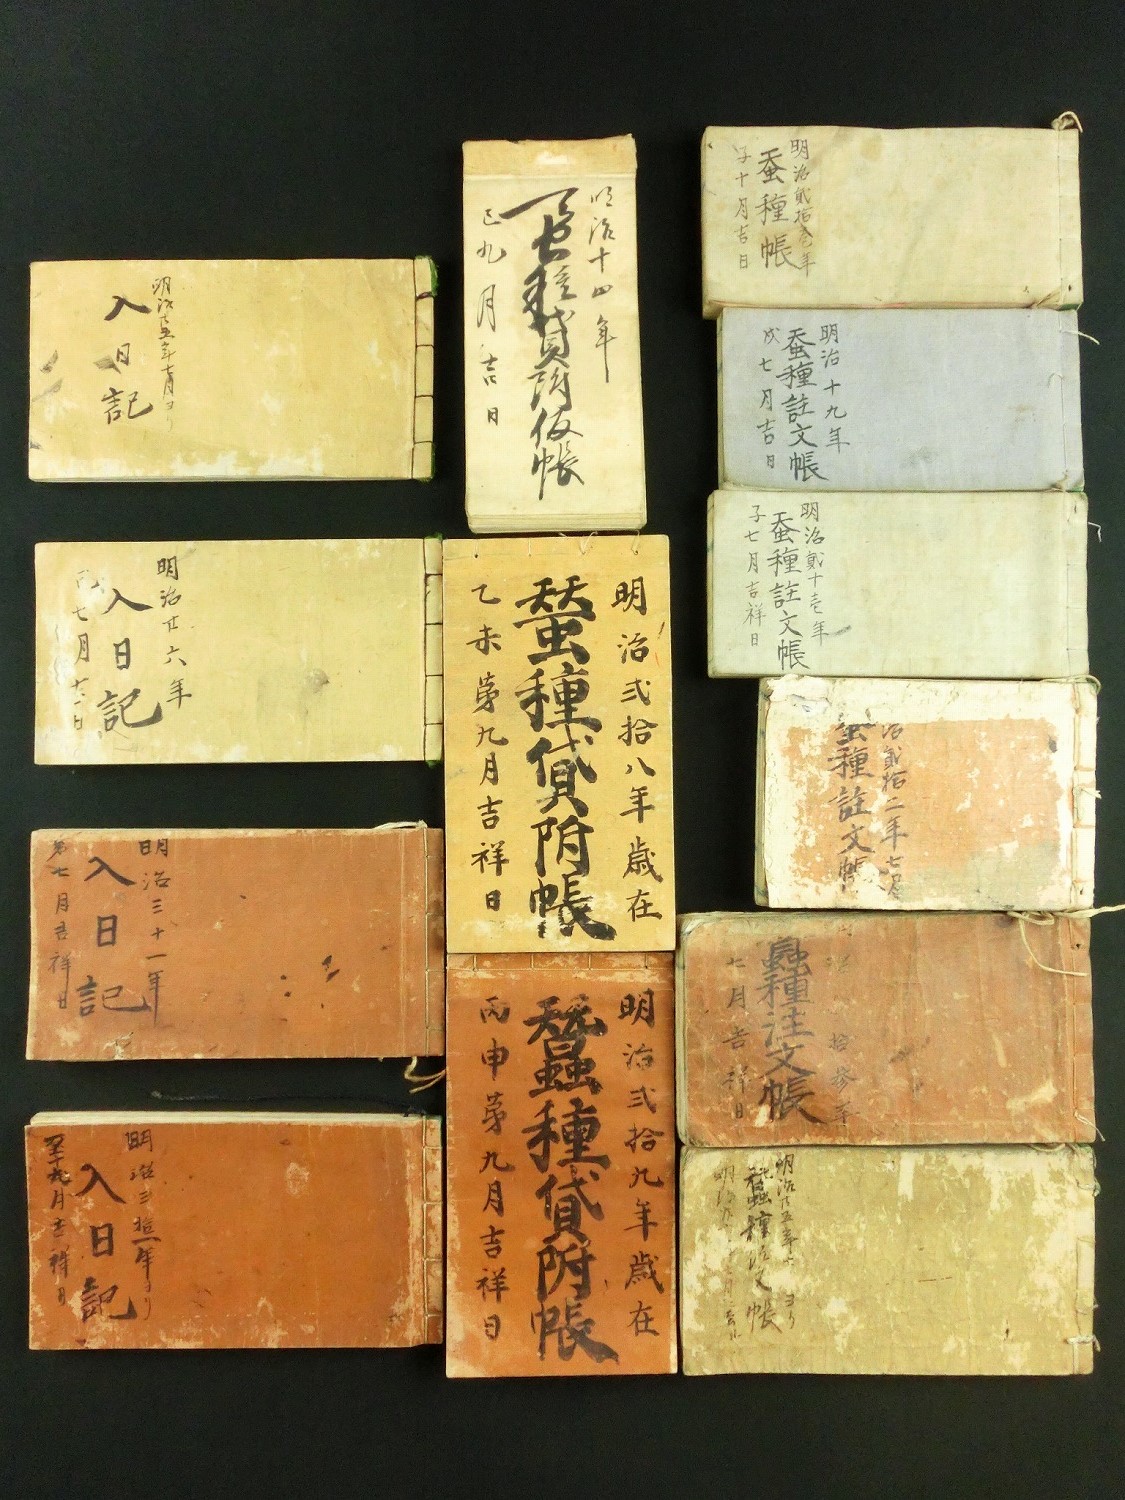 明治廿五年七月ヨリ
入日記
明治廿六年
入日記
七月十一日
明治三十一年
入日記
第七月吉祥日
明治三拾一年ヨリ
入日記
九月吉祥日
明治十四年
蚕種貸附仮帳
巳九月吉日
明治弐拾八年歳在
蚕種貸附帳
乙未第九月吉祥日
明治弐拾九年歳在
蠶種貸附帳
丙申第九月吉祥日
明治貳拾壱年
蚕種帳
子十月吉日
明治十九年
蚕種註文帳
戌七月吉日
明治貳十壱年
蚕種註文帳
子七月吉祥日
治貳拾二年七月
蚕種註文帳
治 拾参年
蠶種注文帳
七月吉祥日
明治廿五年 ヨリ
蠶種 文帳